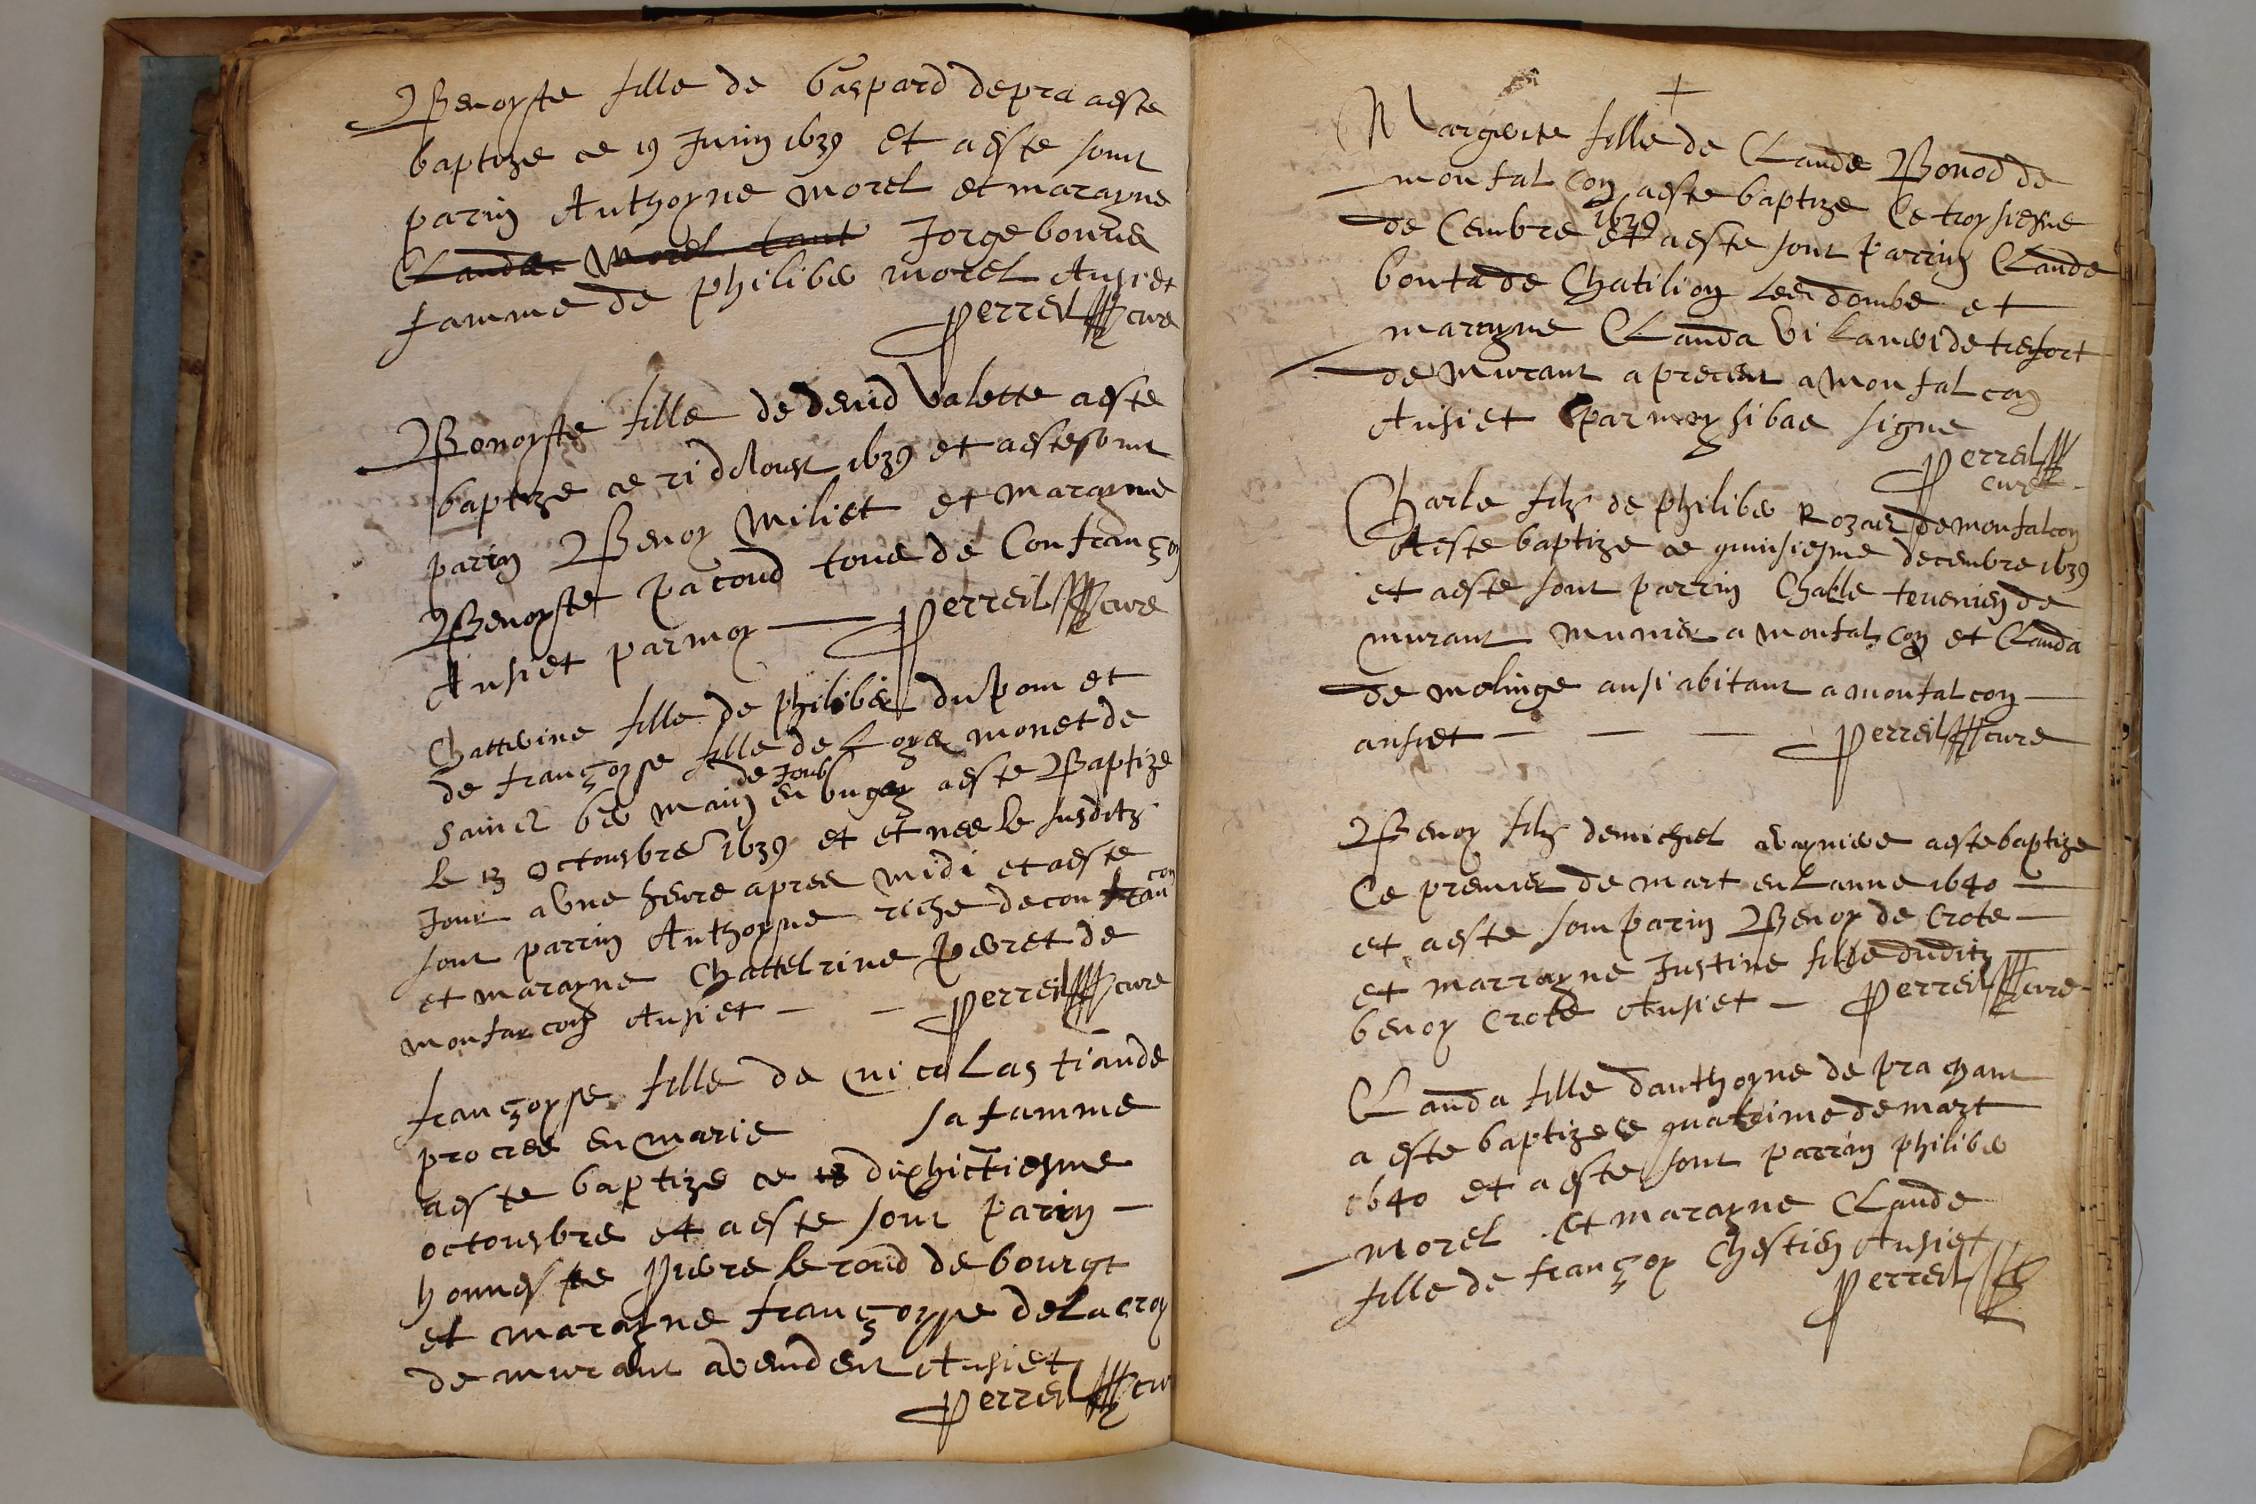 Benoyste fille de Gaspard depra aeste
baptize ce 19 Juin 1639 et aeste sont
parin Anthoyne morel et marayne
Claudae Morel tant Jorge bonne
famme de philiber morel Ausiet
perreil cure
Benoyste fille de denid Valette aeste
baptize ce d'Aoust 1639 et aeste sont
parin Benoy Miliet et marayne
Benoyste pacoud tous de Confranson
Ausiet par moy perreil cure
Chatterine fille de philiber dupom et
de françoyse fille de Loys monet de
de Joub
sainct ger main en bugey aeste Baptize
le 13 Octousbre 1639 et et nee le susditz
Jour a une heure apres midi et aeste
sont parrin Anthoyne riche de con fran
con
et marayne Chattelrine perret de
montarcon Ausiet - - perreil cure
françoyse fille de nicolas tiande
procree en marie sa famme
aeste baptize ce dixhictiesme
octousbre et aeste sont parin -
honneste pierre le rond de bourgt
et marayne françoyse de La croy
de murant a vendent Ausiet
perreil cur
Margerite fille de Claude Bonod de
montalcon aeste baptize Ce troysiesme
de Cembre 1639 et aeste sont parrin Claude
bonta de Chatilion Les dombe et
marayne Clauda Vi de tresfort
de murant a precent a montalcon
Ausiet par moy si bas signe
perreil
cure
Charle filz de philiber Rozat de montalcon
Aeste baptize ce quinsiesme decembre 1639
et aeste sont parrin Chable tevenien de
murant munier a montalcon et Clauda
de molinge ausi abitant a montalcon -
ausiet - - - perreil cure
Benoy filz de michel aeste baptize
Ce premier de mart en Lanne 1640 -
et aeste som parin Benoy de Crote -
et marrayne Justine fille duditz
benoy Crote Ausiet - perreil cure
Clauda fille danthoyne de pra
a este baptize ce quatrime de mart
1640 et aeste sont parrin philiber
morel et marayne Claude
fille de françoy Chestien Ausiet
perreil